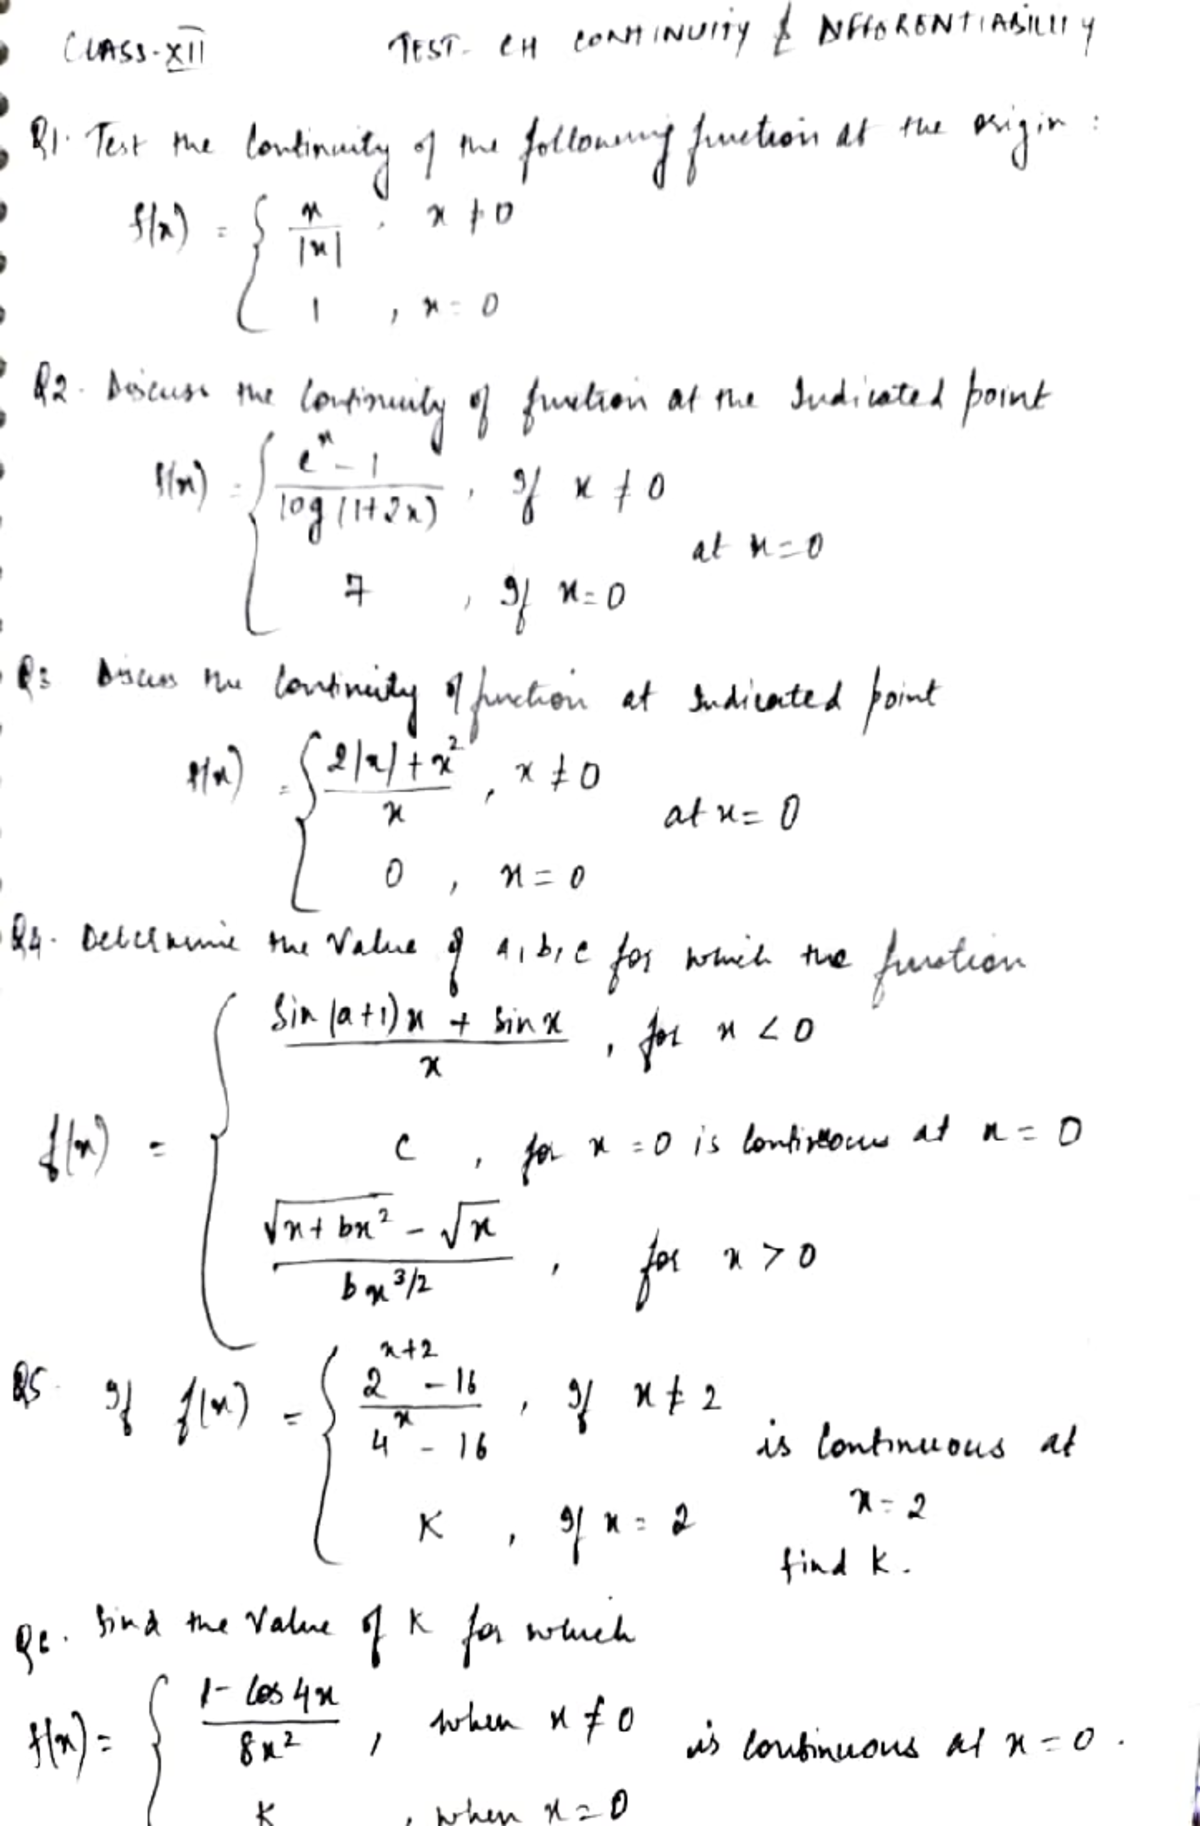 CLASS-XII TEST- CH CONTINUITY & DIFFORENTIABILITY
Q1. Test the Continuity of the following function at the origin :
f(x) = { x/|x| , x ≠ 0
1 , x = 0
Q2. Discuss the Continuity of function at the Indicated point
f(x) = { (e^x - 1)/(log(1+2x)) , If x ≠ 0
at x=0
7 , If x=0
Q3 Discuss the Continuity of function at Indicated point
f(x) = { (2|x| + x^2)/x , x ≠ 0
at x= 0
0 , x = 0
Q4. Determine the Value of a, b, c for which the function
(Sin (a+1)x + Sin x)/x , for x < 0
f(x) = { c , for x = 0 is Continuous at x = 0
(√(x+bx^2) - √x)/(bx^(3/2)) , for x > 0
Q5. If f(x) = { (2^(x+2) - 16)/(4^x - 16) , If x ≠ 2
is Continuous at
K , If x = 2 x = 2
find K.
Q6. find the Value of K for which
f(x) = { (1- Cos 4x)/(8x^2) , when x ≠ 0 is Continuous at x = 0 .
K , when x = 0